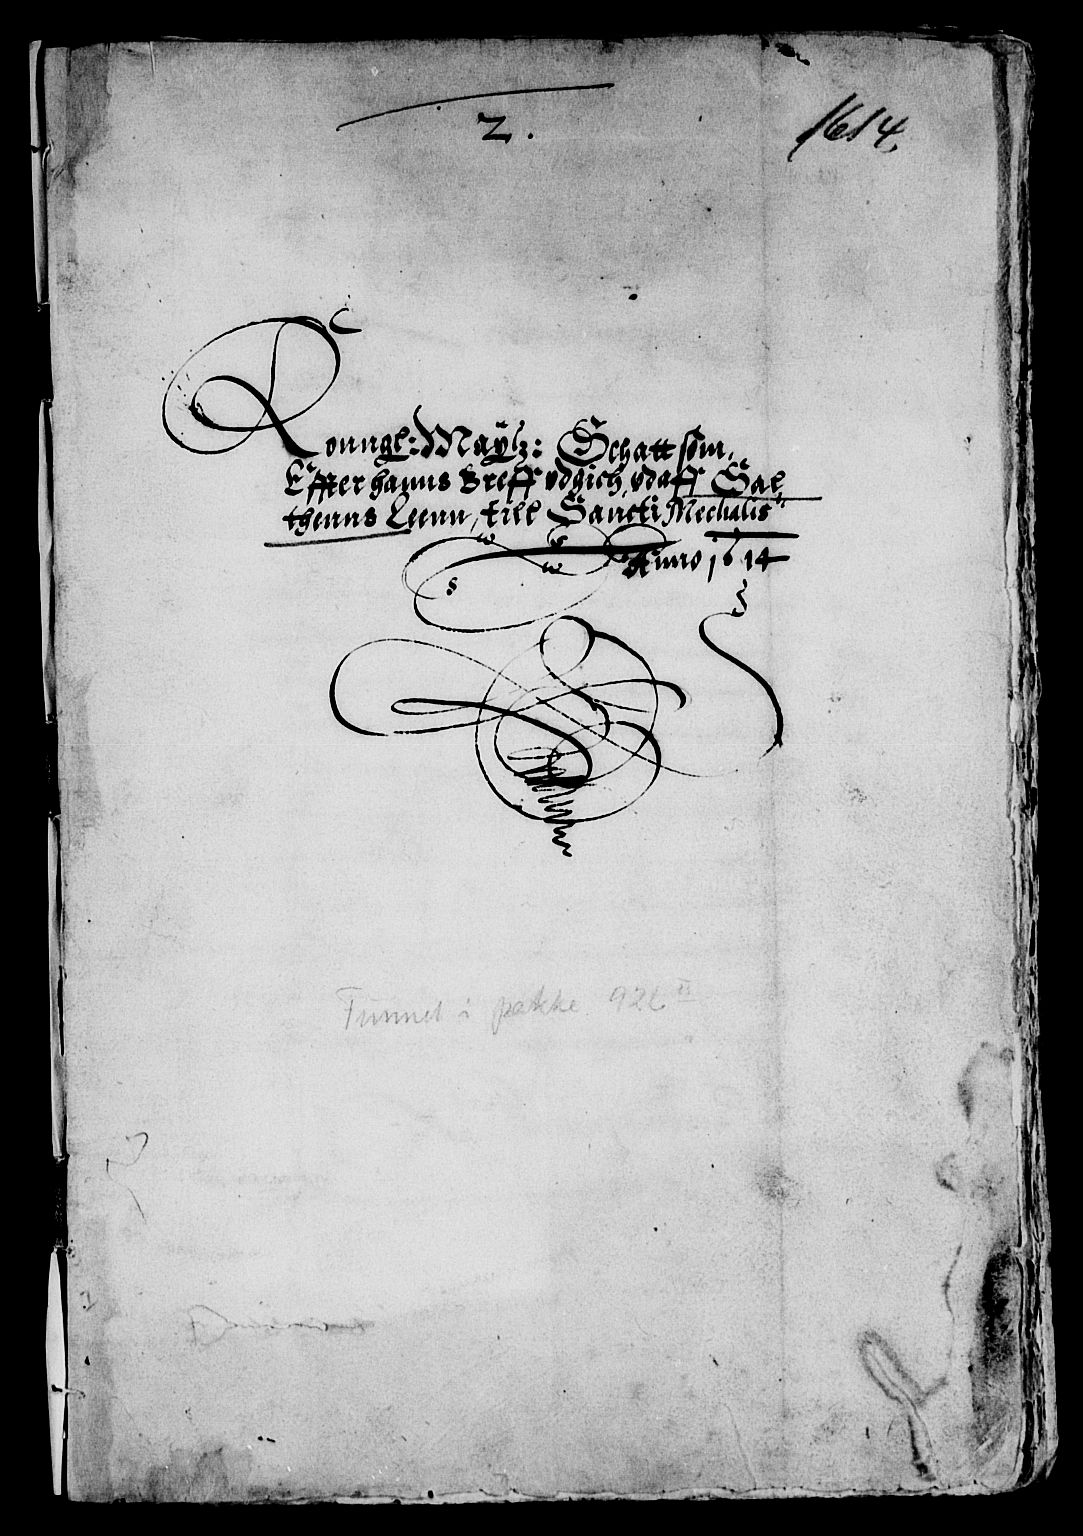 2.
1614
Konngl: Maÿtz: Schatt som,
Effter hanns Breff vdgich, vdaff Sal,
thenns Leenn, till Sancti Mechelis
Anno 1614
Funnet i pakke 92